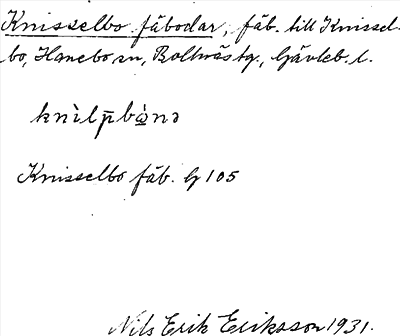 Knisselbo fäbodar, fäb. till Knissel-
bo, Hanebo sn, Bollnäs tg., Gävleb. l.
Knisselbo fäb. G 105
Nils Erik Eriksson 1931.